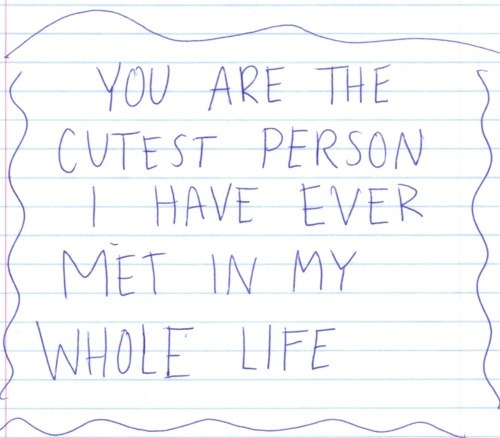 YOU ARE THE
CUTEST PERSON
I HAVE EVER
MET IN MY
WHOLE LIFE